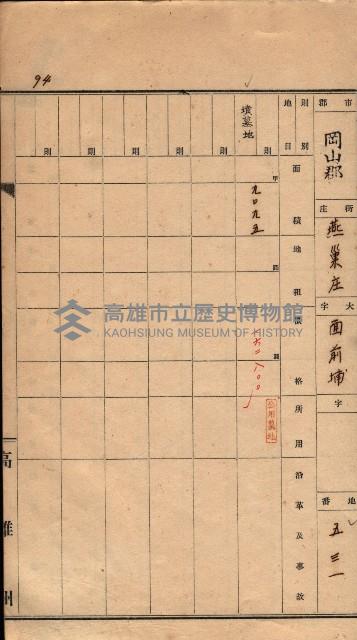 94
市郡
岡山郡
街庄
燕巢庄
大字
面前埔
字
地番
五三一
則別
地目
面積
地租
價格
所用
沿革及事故
墳墓地
則
則
則
則
則
則
甲
九〇九五
圓
公用墓地
高雄州
高雄市立歷史博物館
KAOHSIUNG MUSEUM OF HISTORY